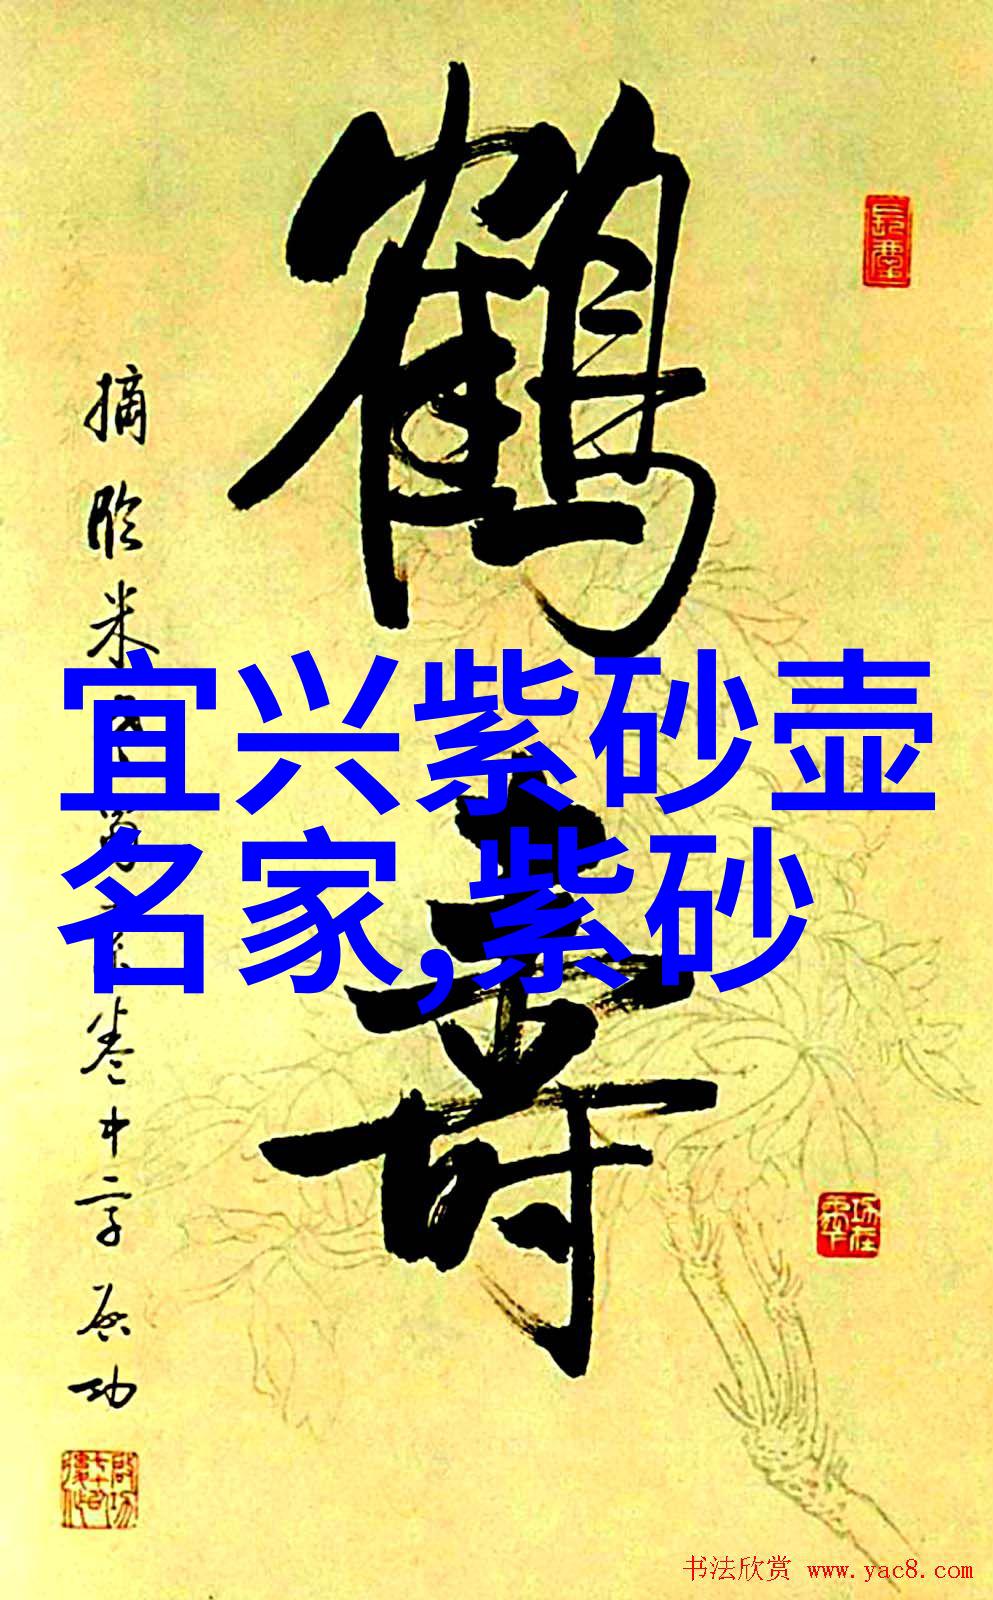 鹤寿
摘临米
卷中字启功
宜兴紫砂壶
名家,紫砂
书法欣赏 www.yac8.com